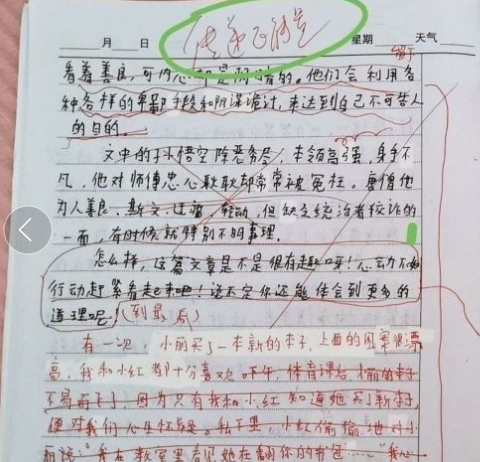 传递正能量
月 日 星期 天气
留下
看着善良，可内心却是阴暗的。他们会利用各
种各样的卑鄙手段和阴谋诡计，来达到自己不可告人
的目的。
文中的孙悟空除恶务尽，本领高强，身手不
凡，他对师傅忠心耿耿却常常被冤枉。唐僧他
为人善良、斯文、但缺乏统治者狡诈的
一面，有时候就特别不明事理。
怎么样，这篇文章是不是很有趣呀！心动不如
行动赶紧看起来吧！说不定你还能体会到更多的
道理呢！（到最后）
有一次，小丽买了一本新的本子，上面的图案很漂
亮，我和小红都十分喜欢 下午，体育课后 小丽的本子
不易而飞了，因为只有我和小红知道她买了新本子，
便对我们心生怀疑。私下里，小红偷偷地对小
丽说：“我在教室里看见她在翻你的书包……”“我心